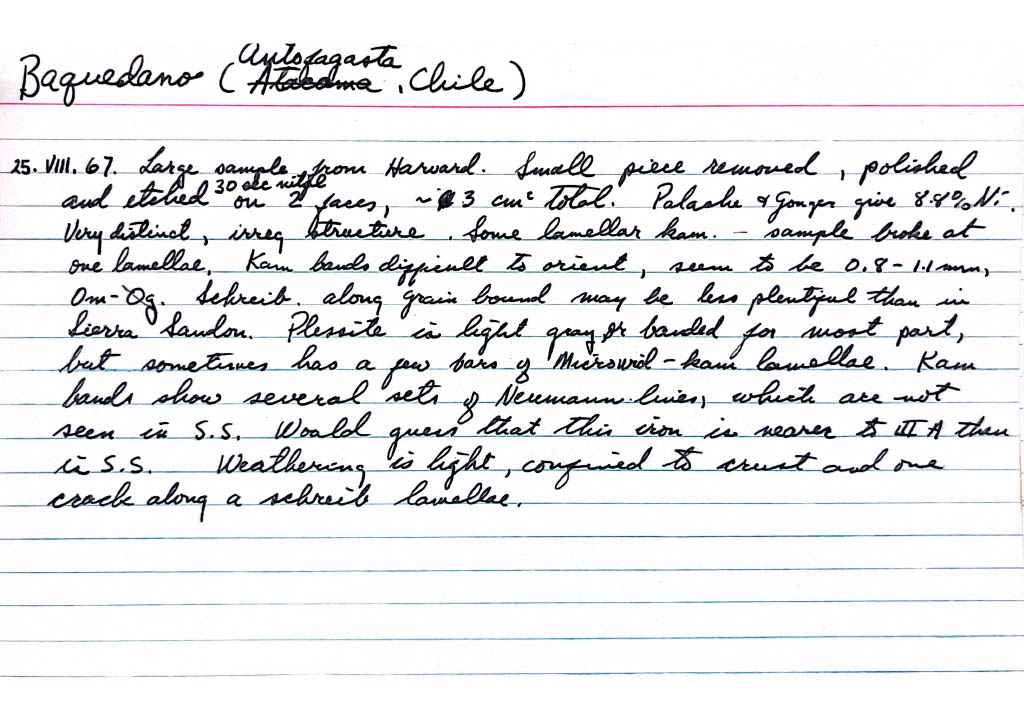 Antofagasta
Baquedano (Atacama, Chile)
25.VIII.67. Large sample from Harvard. Small piece removed, polished
30 sec nital
and etched on 2 faces, ~ 3 cm² total. Palache & Gonyer give 8.8% Ni.
Very distinct, irreg structure. Some lamellar kam. - sample broke at
one lamellae. Kam bands difficult to orient, seem to be 0.8-1.1 mm,
Om-Og. Schreib. along grain bound may be less plentiful than in
Sierra Sandon. Plessite is light gray or banded for most part,
but sometimes has a few bars of Microwid-kam lamellae. Kam
bands show several sets of Neumann lines, which are not
seen in S.S. Would guess that this iron is nearer to III A than
is S.S. Weathering is light, confined to crust and one
crack along a schreib lamellae.